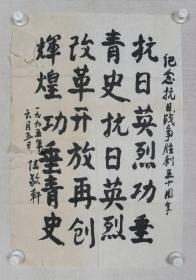 纪念抗日战争胜利五十周年
抗日英烈功垂
青史抗日英烈
改革开放再创
辉煌功垂青史
一九九五年
六月三日
陆敬轩